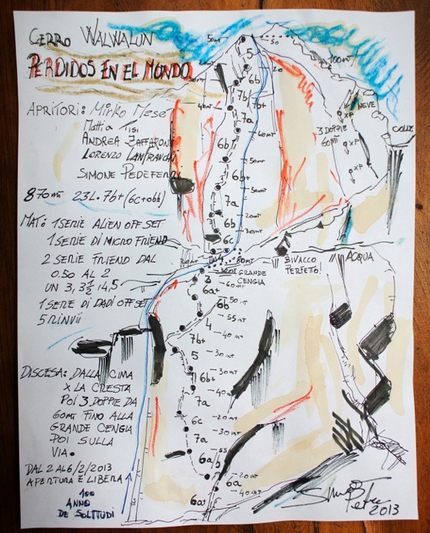 CERRO WALWALUN
PERDIDOS EN EL MONDO
APRITORI: Mirko Masè
Mattia Tisi
ANDREA ZAFFARONI
LORENZO LANFRANCHI
SIMONE PEDEFERRI
870mt 23L. 7b+ (6c+obb)
MAT: 1 SERIE ALIEN OFFSET
1 SERIE DI MICRO FRIEND
2 SERIE FRIEND DAL
0.50 AL 2
UN 3, 3½, 4,5
1 SERIE DI DADI OFFSET
5 RINVII
DISCESA: DALLA CIMA
X LA CRESTA
POI 3 DOPPIE DA
60mt FINO ALLA
GRANDE CENGIA
POI SULLA
VIA.
DAL 2 AL 6/2/2013
APERTURA E LIBERA
100
ANNO
DE SOLTTUDI
5
6b
7b
7b+
7a
6b
7a
6b
6c
4
GRANDE
CENGIA
3
6a+
6b
4
7b+
6b+
7a
7a
6a/b
6a
100mt
NEVE
3 DOPPIE
60mt
COLLE
BIVACCO
PERFETO!
ACQUA
2013